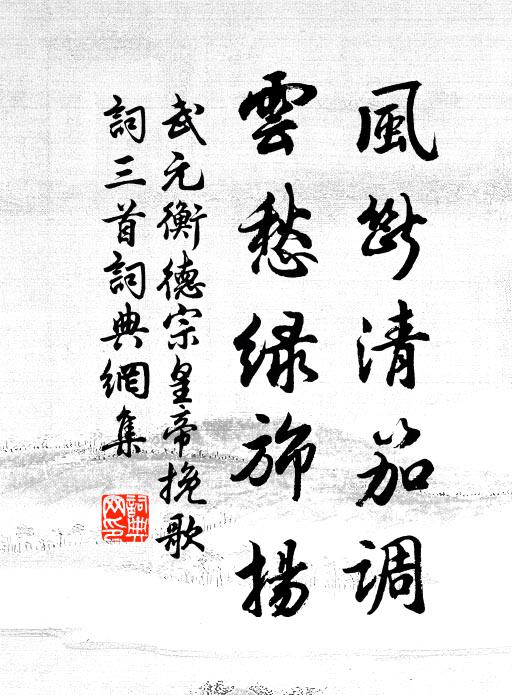 風斷清笳調
雲愁綠旆揚
武元衡德宗皇帝挽歌
詞三首詞典網集
詞典
网印